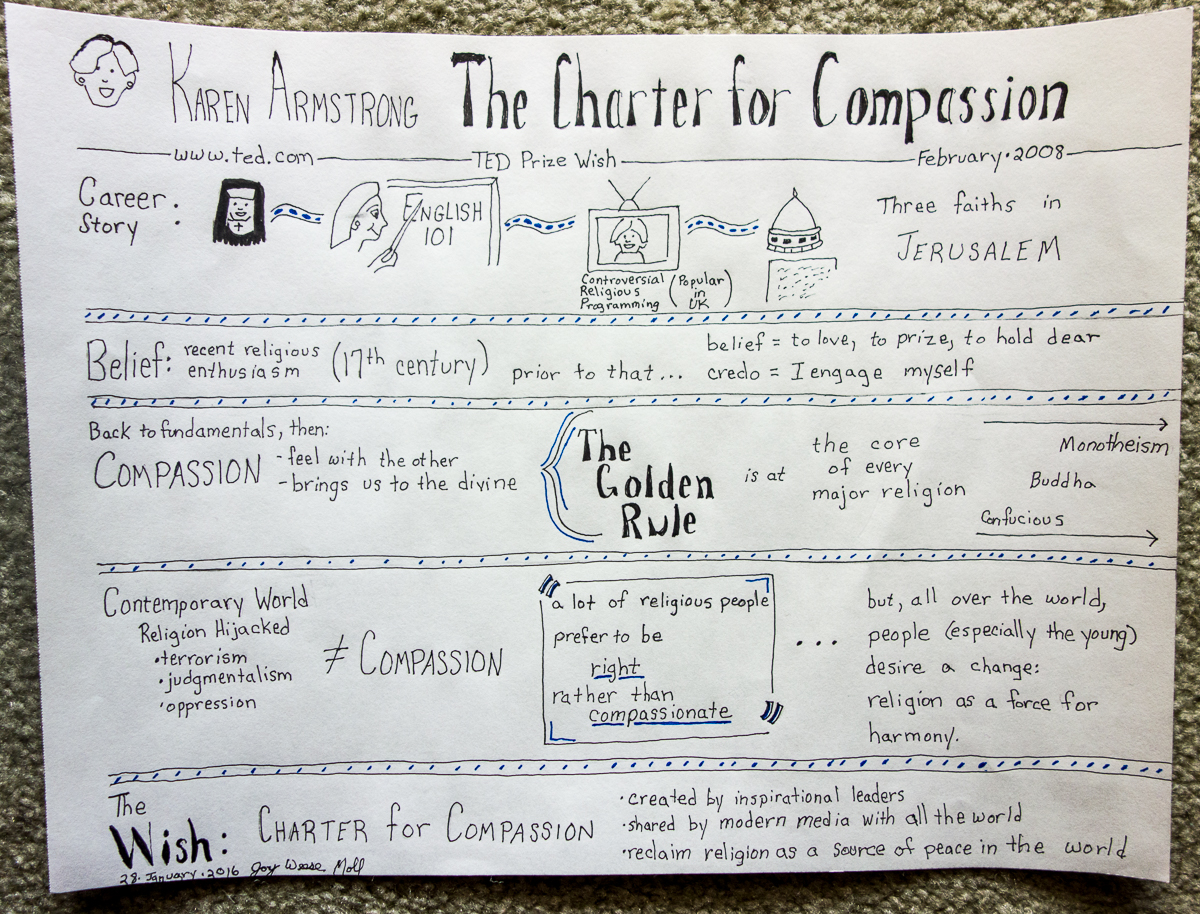 KAREN ARMSTRONG The Charter for Compassion
www.ted.com TED Prize Wish February · 2008
Career Story :
ENGLISH 101
Controversial Religious Programming (Popular in UK)
Three faiths in
JERUSALEM
Belief: recent religious enthusiasm (17th century) prior to that...
belief = to love, to prize, to hold dear
credo = I engage myself
Back to fundamentals, then:
COMPASSION
- feel with the other
- brings us to the divine
The
Golden
Rule
is at
the core
of every
major religion
Monotheism
Buddha
Confucious
Contemporary World
Religion Hijacked
· terrorism
· judgmentalism
· oppression
≠ COMPASSION
"a lot of religious people
prefer to be
right
rather than
compassionate"
...
but, all over the world,
people (especially the young)
desire a change:
religion as a force for
harmony.
The
Wish: CHARTER for COMPASSION
· created by inspirational leaders
· shared by modern media with all the world
· reclaim religion as a source of peace in the world
28 · January · 2016 Joy Weese Moll